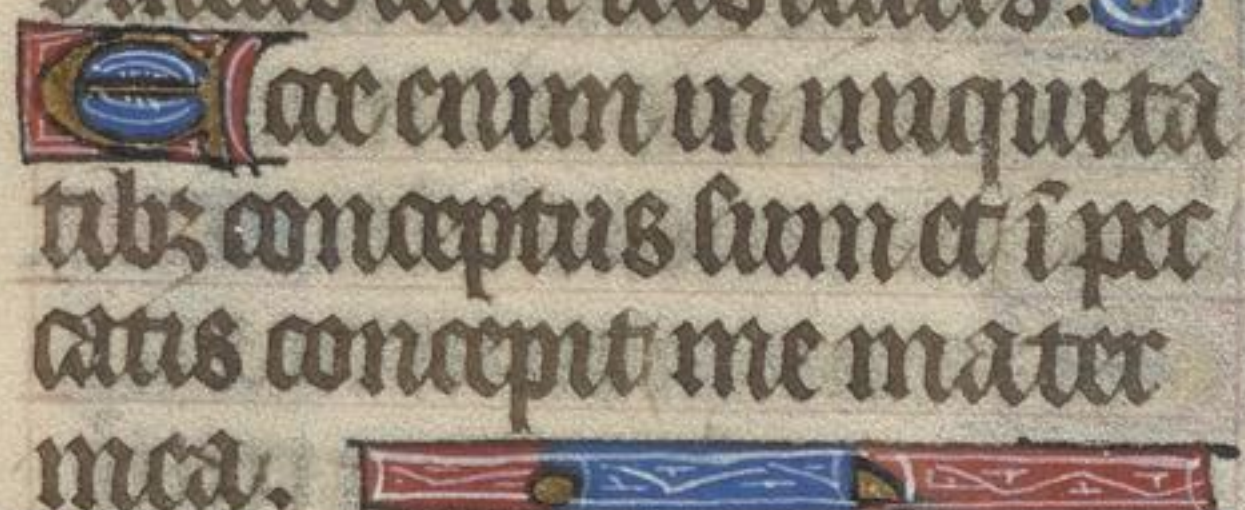 Ecce enim in iniquita
tibꝫ conceptus sum et ī pec
catis concepit me mater
mea.